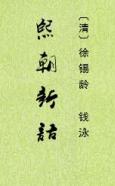 〔清〕徐锡龄 钱泳
熙朝新語